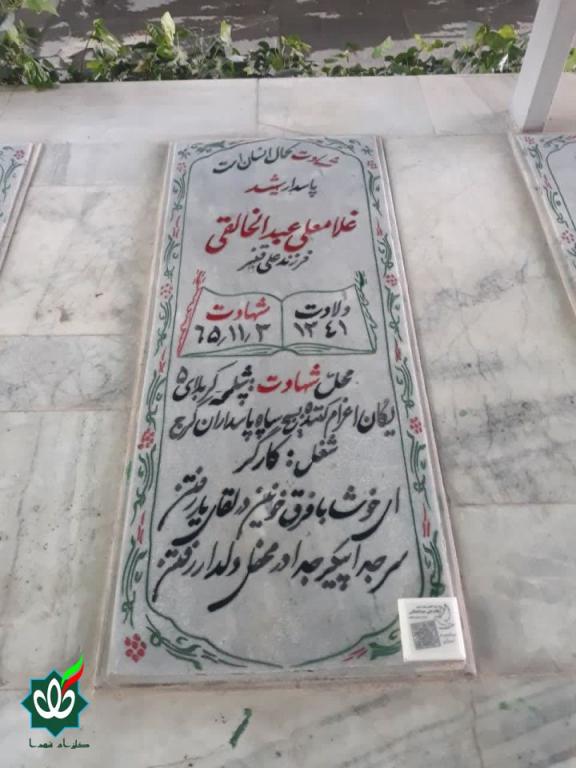 شهادت کمال انسان است
پاسدار شهید
غلامعلی عبدالخالقی
فرزند علی قنبر
ولادت
۱۳۴۱
شهادت
۶۵/۱۱/۳
محل شهادت: شلمچه کربلای ۵
یگان اعزام کننده بسیج سپاه پاسداران کرج
شغل: کارگر
ای خوشا با فرق خونین در لقای یار رفتن
سر جدا پیکر جدا در محفل دلدار رفتن
گلزار شهدا